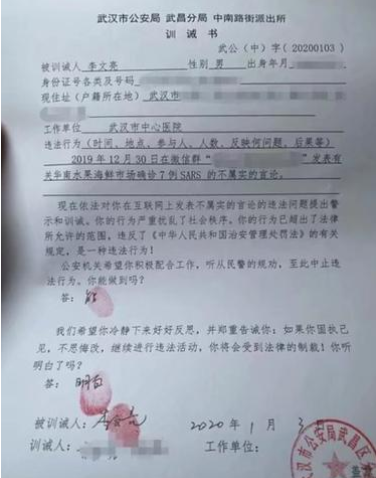 武汉市公安局 武昌分局 中南路街派出所
训诫书
武公(中)字(20200103)
被训诫人 李文亮 性别 男 出身年月
身份证号各类及号码
现住址(户籍所在地) 武汉市
工作单位 武汉市中心医院
违法行为(时间、地点、参与人、人数、反映何问题、后果等)
2019年12月30日在微信群“ ”发表有
关华南水果海鲜市场确诊7例SARS的不属实的言论。
现在依法对你在互联网上发表不属实的言论的违法问题提出警
示和训诫。你的行为严重扰乱了社会秩序。你的行为已超出了法律
所允许的范围,违反了《中华人民共和国治安管理处罚法》的有关
规定,是一种违法行为!
公安机关希望你积极配合工作,听从民警的规劝,至此中止违
法行为。你能做到吗?
答:能
我们希望你冷静下来好好反思,并郑重告诫你:如果你固执己
见,不思悔改,继续进行违法活动,你将会受到法律的制裁!你听
明白了吗?
答:明白
被训诫人:李文亮 2020年1月3日
训诫人: 工作单位:
武汉市公安局武昌区